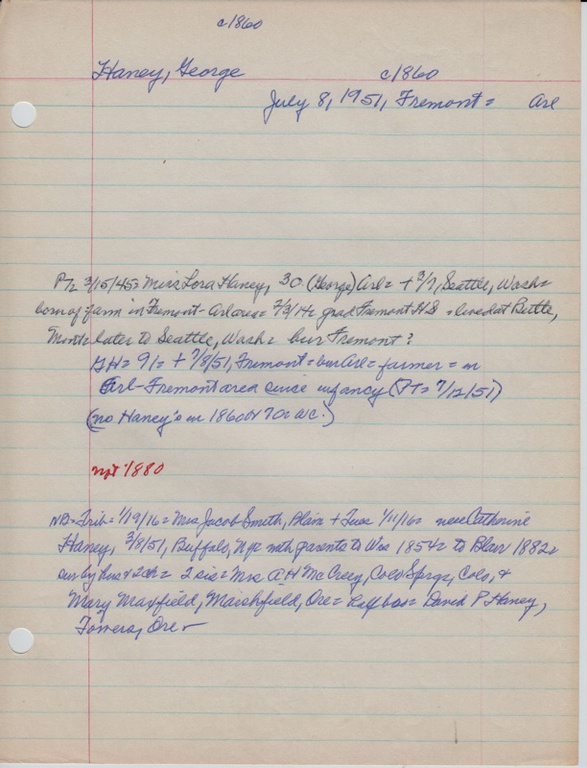 c1860
Haney, George c1860
July 8, 1951, Fremont = Arl
PT 3/15/45 = Miss Lora Haney, 30 (George) Arl = + 3/7, Seattle, Wash =
born of farm in Fremont - Arl area = 7/3/14 = grad Fremont H/S = lived at Butte,
Mont = later to Seattle, Wash = bur Fremont?
GH = 91 = + 7/8/51, Fremont = bur Arl = farmer = in
Arl-Fremont area since infancy (PT = 7/12/51)
(no Haney's in 1860 or 70 = WC.)
not 1880
NB = Trib = 1/19/16 = Mrs Jacob Smith, Blair + Tues 1/11/16 = nee Catherine
Haney, 3/8/51, Buffalo, NY = with parents to Wis 1854 = to Blair 1882 =
sur by hus & 2ch = 2 sis = Mrs A H McCreey, Colo Sprgs, Colo, &
Mary Maxfield, Marshfield, Ore = half bro = David P Haney,
Ore